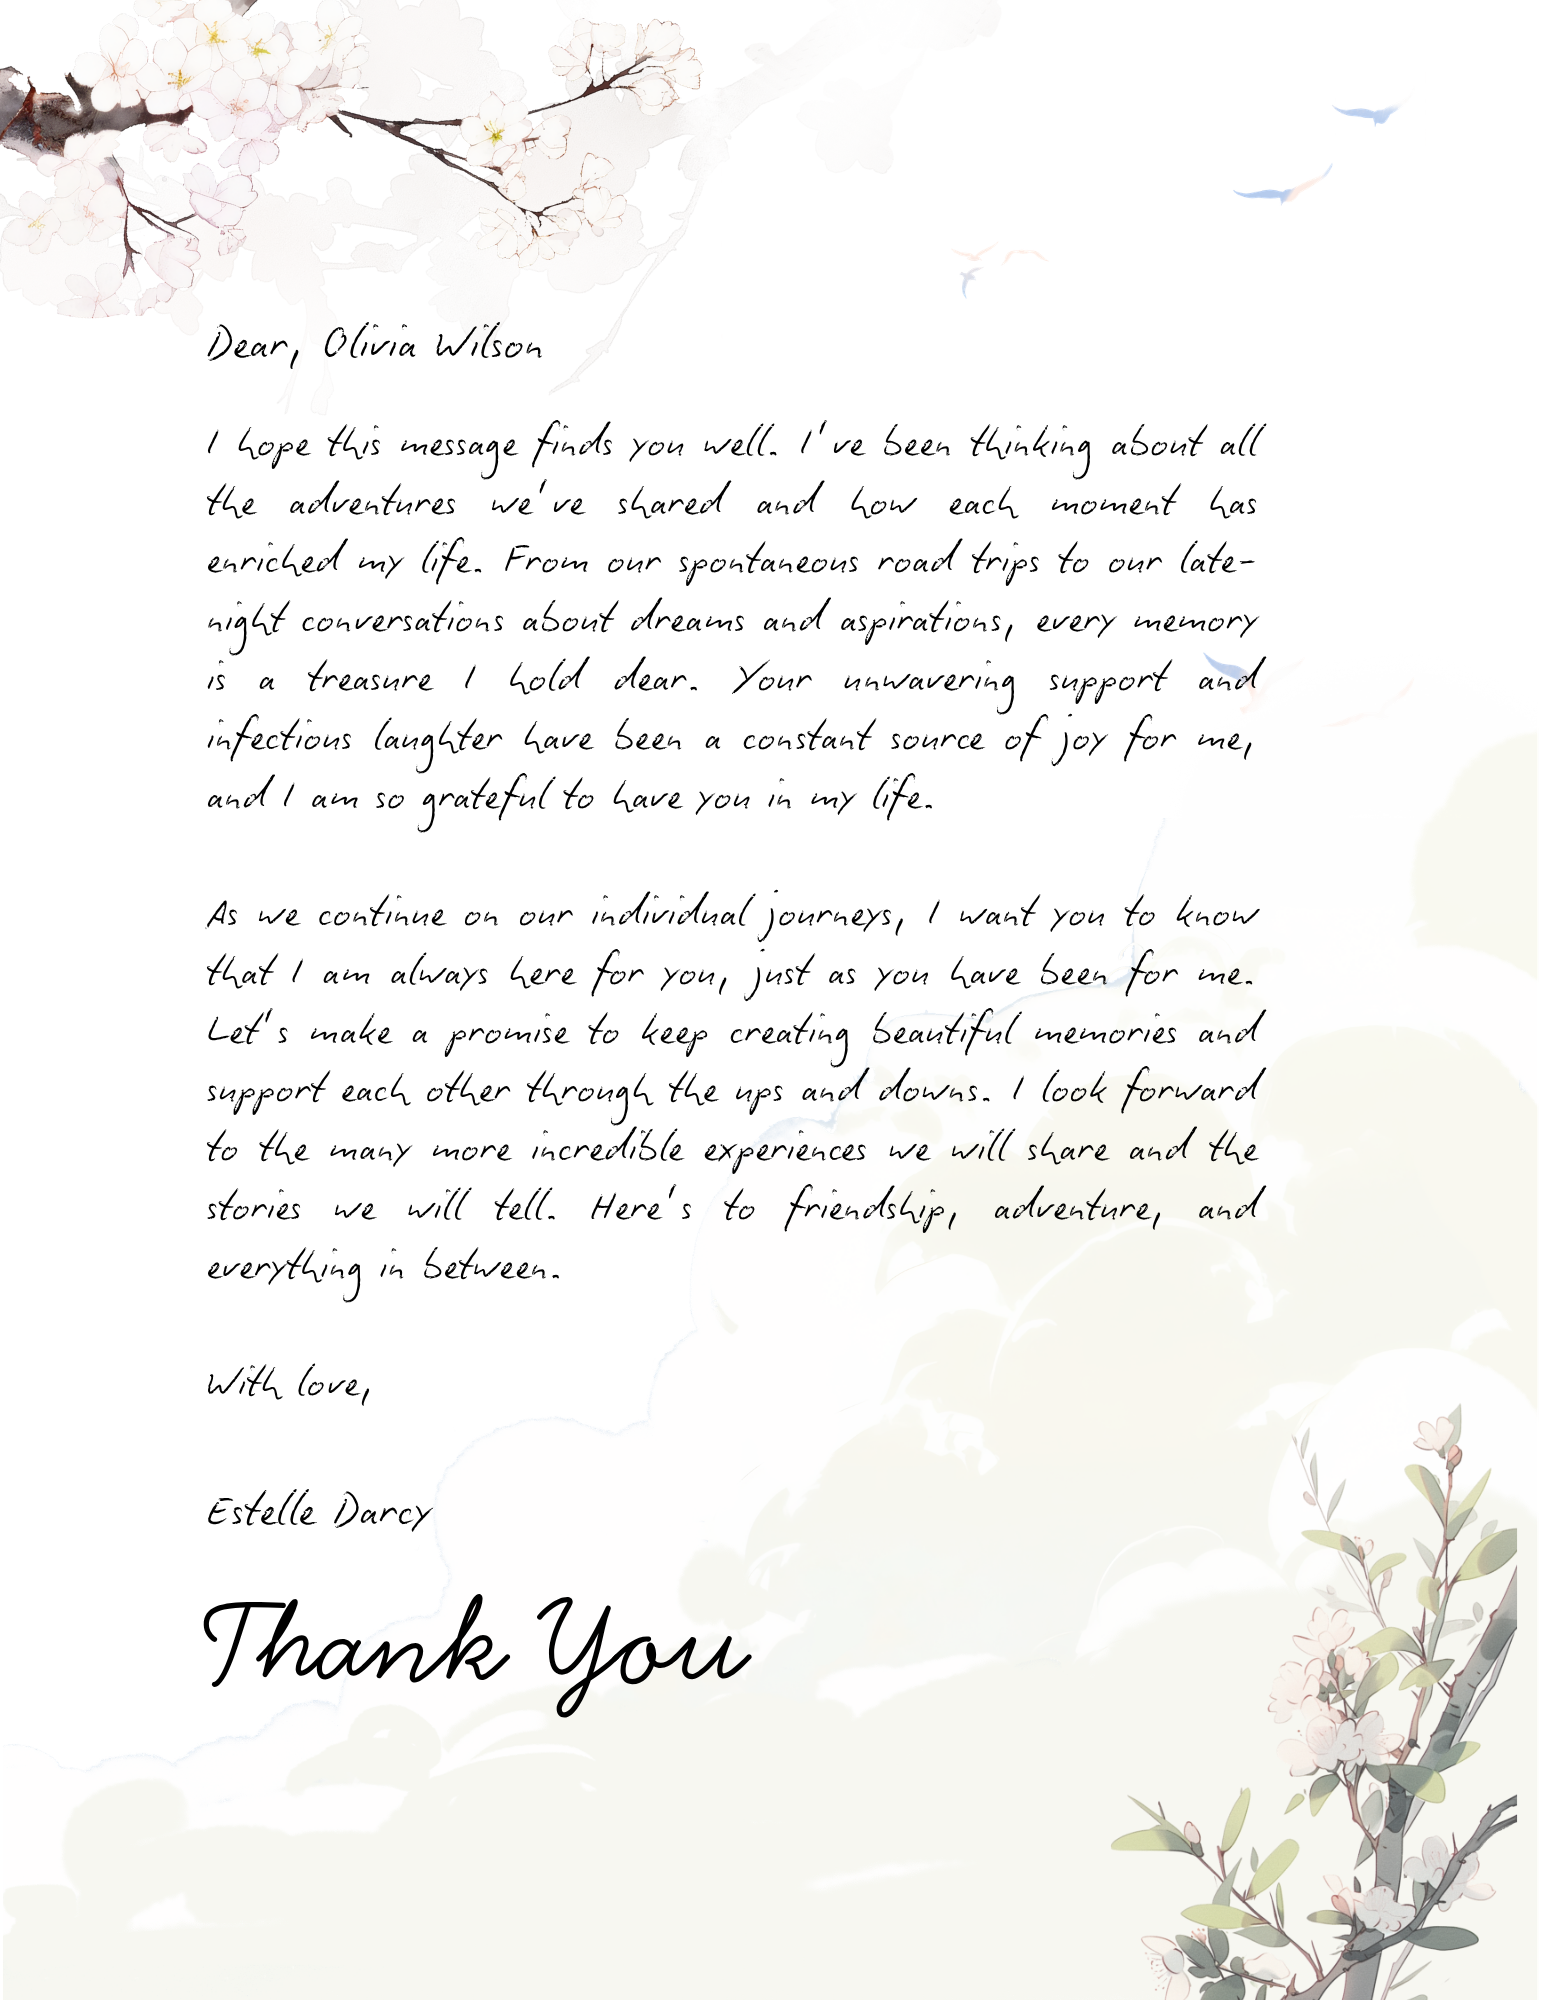 Dear, Olivia Wilson
I hope this message finds you well. I've been thinking about all
the adventures we've shared and how each moment has
enriched my life. From our spontaneous road trips to our late-
night conversations about dreams and aspirations, every memory
is a treasure I hold dear. Your unwavering support and
infectious laughter have been a constant source of joy for me,
and I am so grateful to have you in my life.
As we continue on our individual journeys, I want you to know
that I am always here for you, just as you have been for me.
Let's make a promise to keep creating beautiful memories and
support each other through the ups and downs. I look forward
to the many more incredible experiences we will share and the
stories we will tell. Here's to friendship, adventure, and
everything in between.
With love,
Estelle Darcy
Thank You